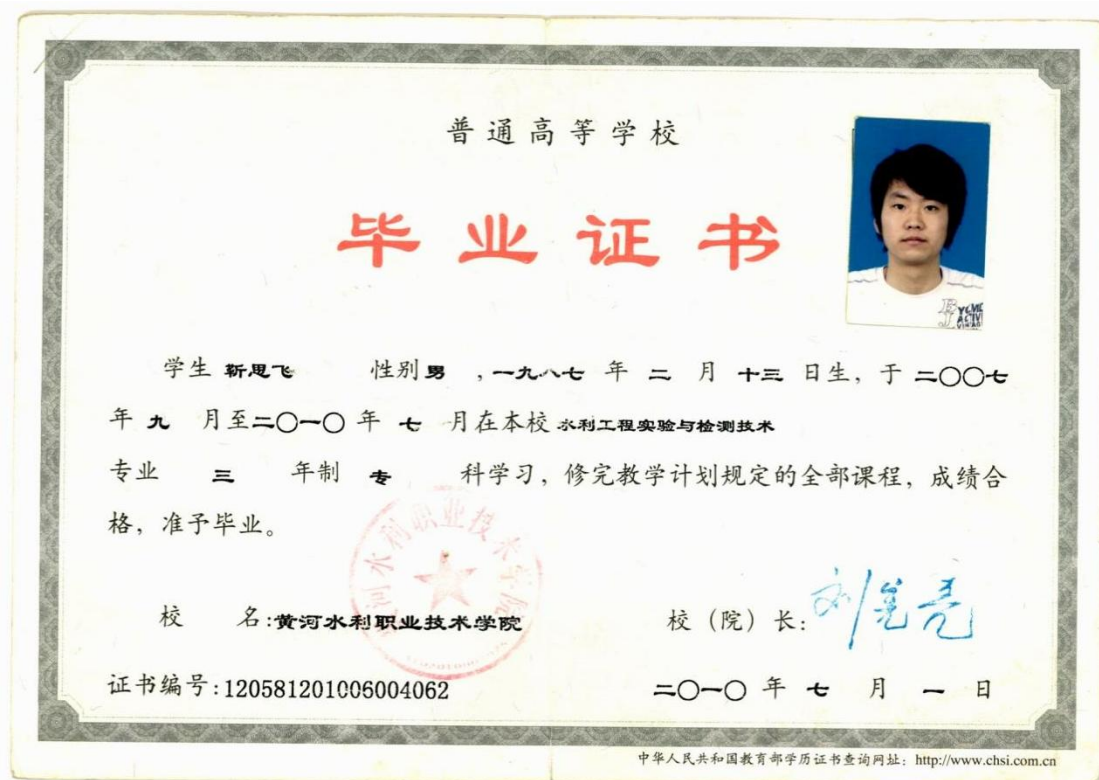 普通高等学校
毕业证书
学生 靳思飞 性别 男 ,一九八七 年 二 月 十三 日生，于 二〇〇七
年 九 月至二〇一〇 年 七 月在本校 水利工程实验与检测技术
专业 三 年制 专 科学习，修完教学计划规定的全部课程，成绩合
格，准予毕业。
黄河水利职业技术学院
校 名:黄河水利职业技术学院
校（院）长:
证书编号:120581201006004062
二〇一〇 年 七 月 一 日
中华人民共和国教育部学历证书查询网址：http://www.chsi.com.cn